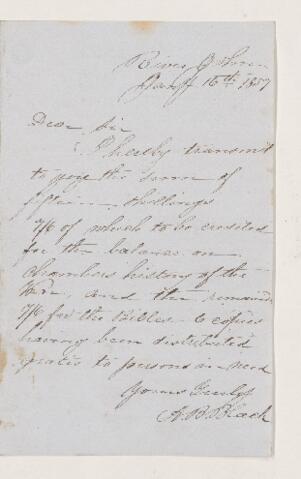 River John
Jany 16th 1857
Dear Sir
I hereby transmit
to you the sum of
fifteen shillings
7/6 of which to be credited
for the balance on
Chambers history of the
War, and the remaind
7/6 for the Bibles - 6 copies
having been distributed
gratis to persons in need
Yours Truly
A. B. Black